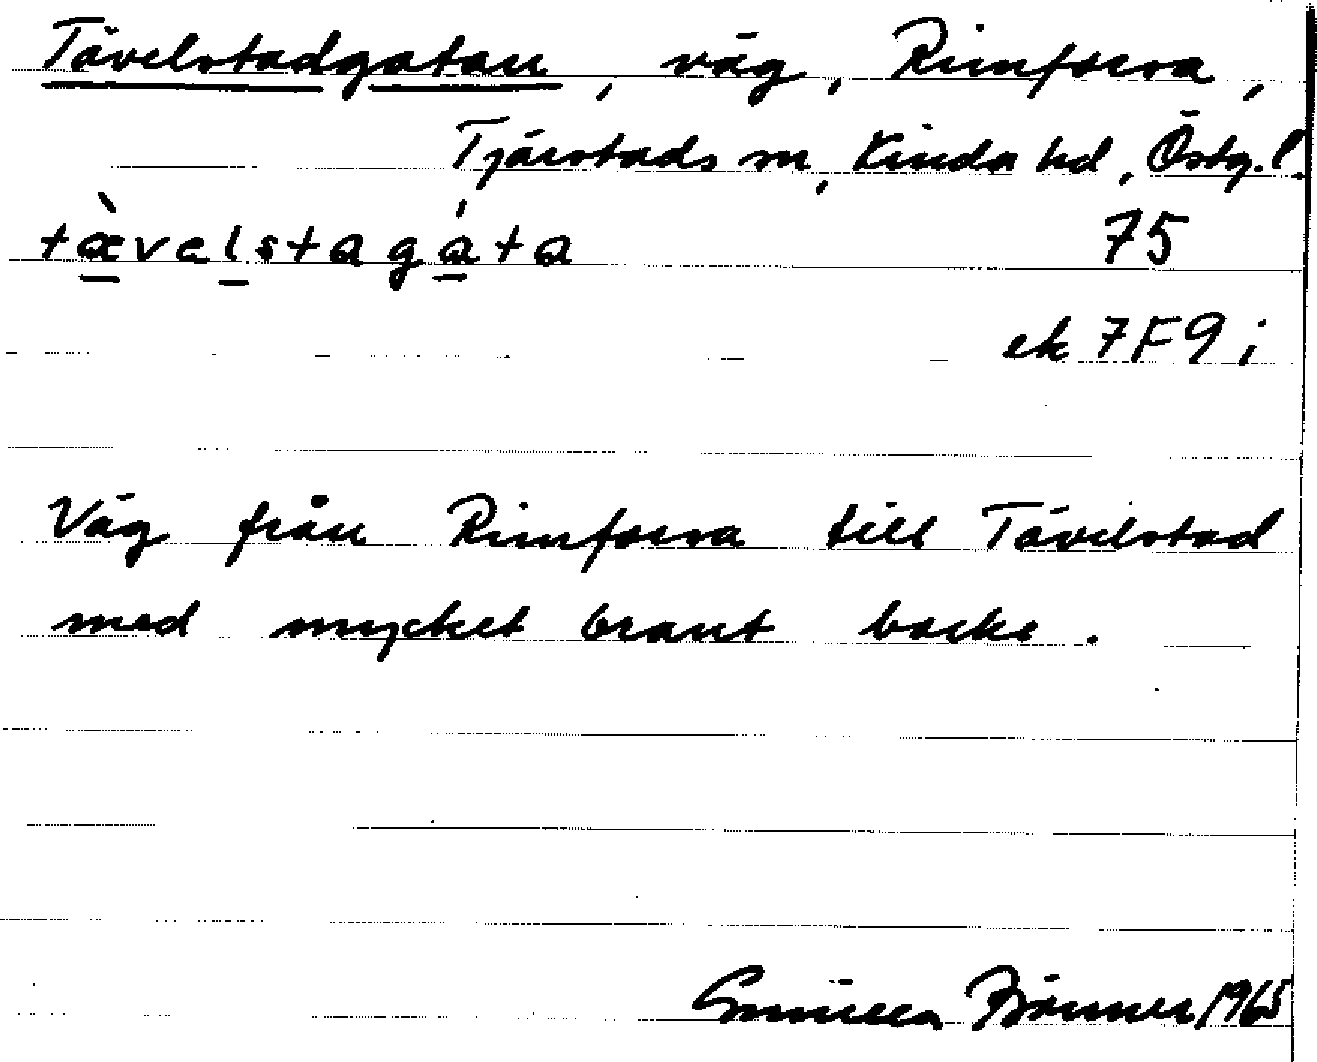 Tävelstadgatan, väg, Rimforsa,
Tjärstads sn, Kinda hd, Östg.l.
tæ̀velstagáta 75
ek 7F9i
Väg från Rimforsa till Tävelstad
med mycket brant backe.
Gunilla 1965